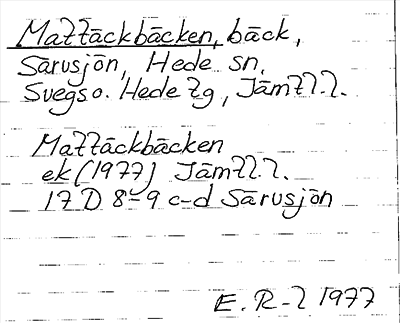 Mattäckbäcken, bäck,
Särusjön, Hede sn,
Svegs o. Hede tg, Jämtl.l.
Mattäckbäcken
ek (1977) Jämtl.l.
17 D 8-9 c-d Särusjön
E. R-l 1977